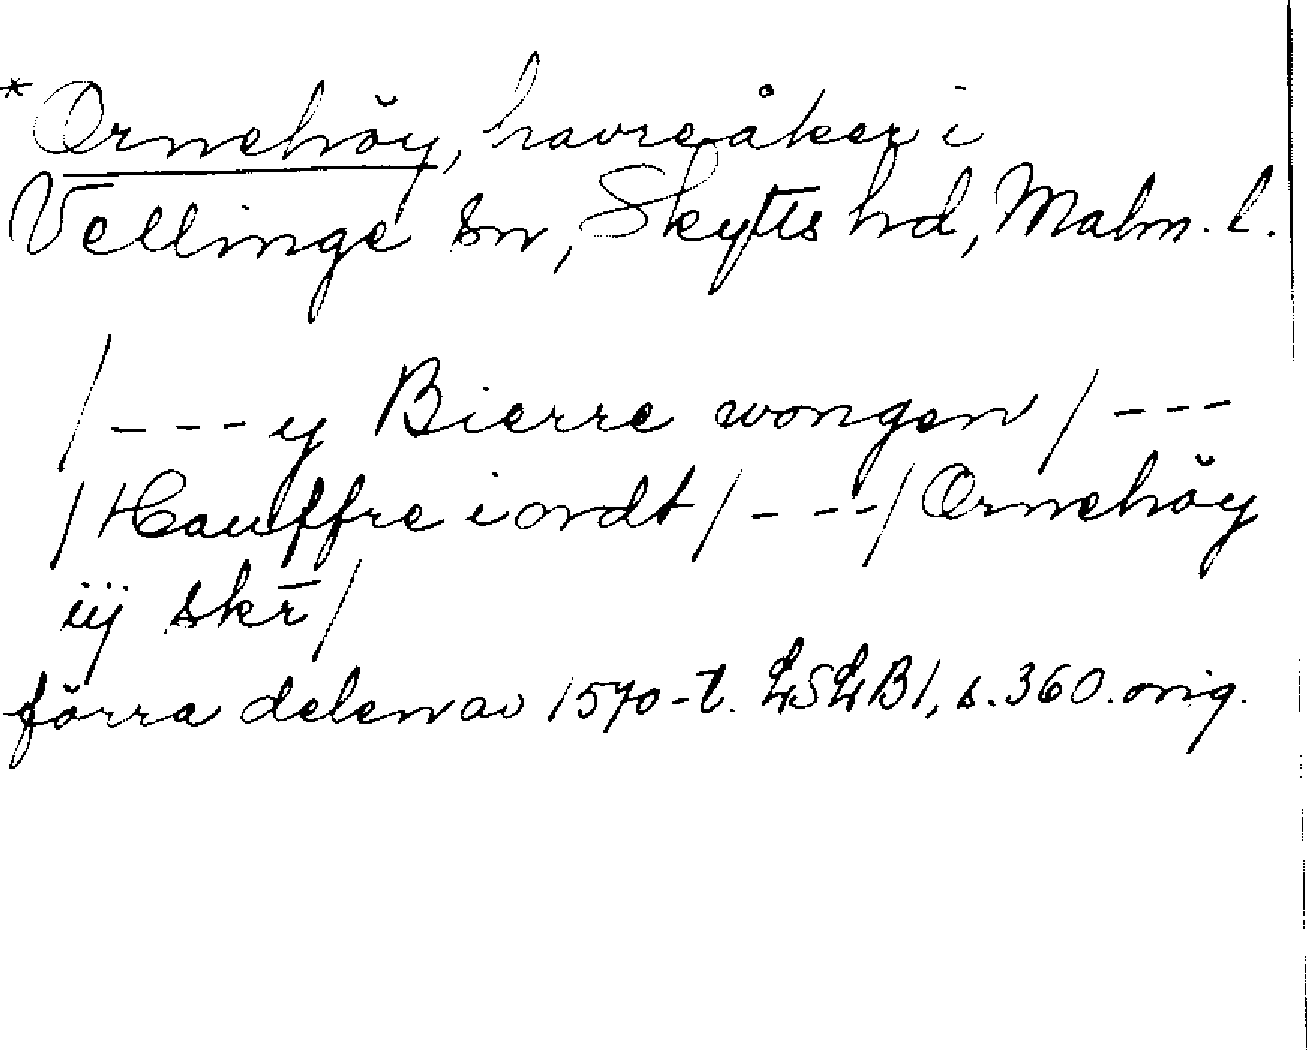 *Ornehŏy, havreåker i
Vellinge sn, Skytts hd, Malm. l.
/---y Bierre wongen/---
/Hauffre iordt/---/Ornehŏy
iij skr̄/
förra delen av 1570-t. LSLB1, s. 360. orig.